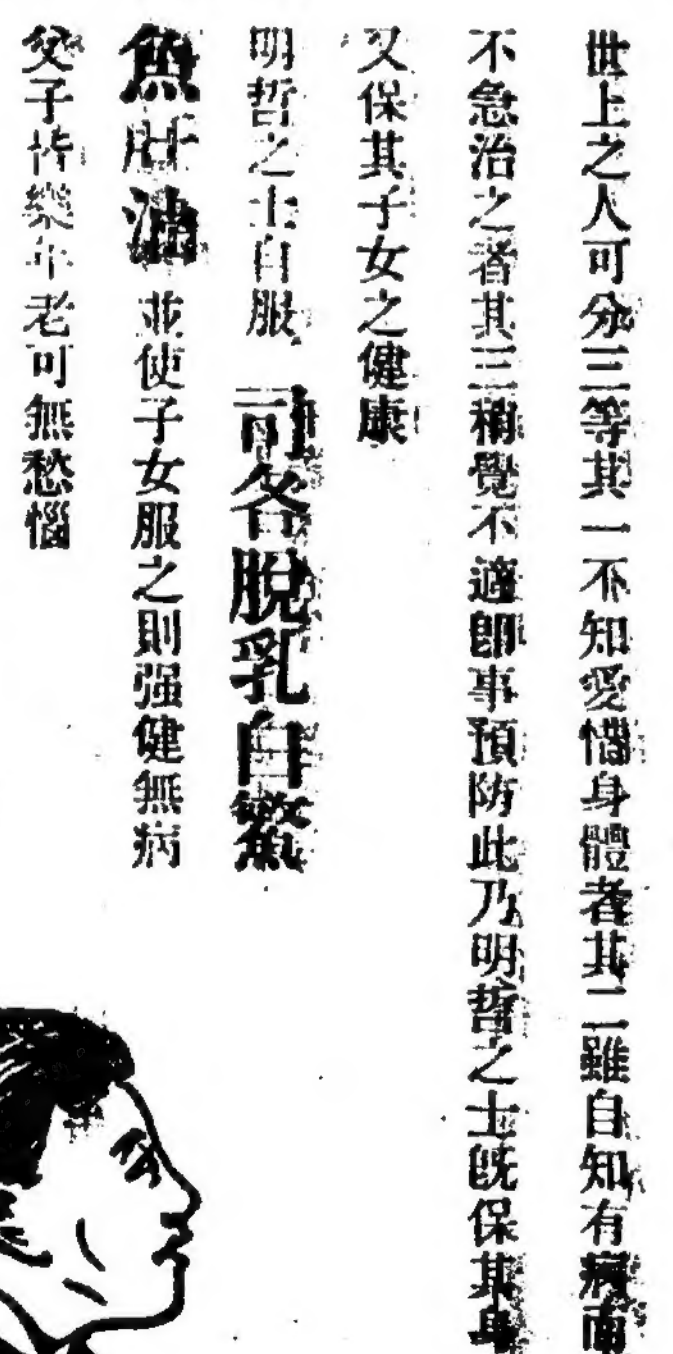 世上之人可分三等其一不知愛惜身體者其二雖自知有病而
不急治之者其三稍覺不適卽事預防此乃明哲之士旣保其身
又保其子女之健康
明哲之士自服司各脫乳白鰵
魚肝油並使子女服之則强健無病
父子皆樂年老可無愁惱